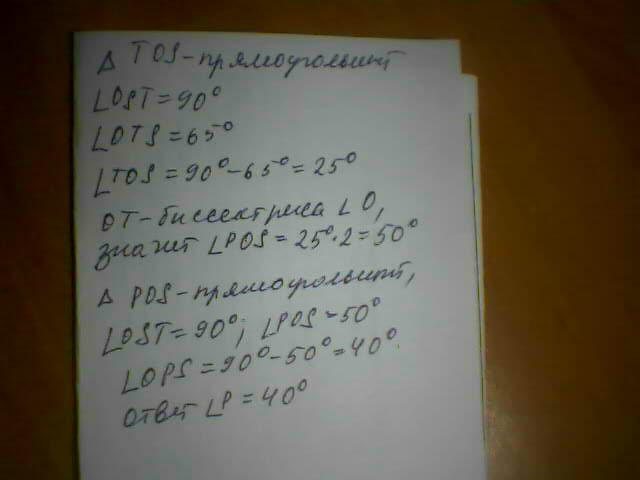 Δ TOS-прямоугольный
∠OST=90°
∠OTS=65°
∠TOS=90°-65°=25°
OT-биссектриса ∠O,
значит ∠POS=25°·2=50°
Δ POS-прямоугольный,
∠OST=90°; ∠POS=50°
∠OPS=90°-50°=40°.
ответ ∠P=40°